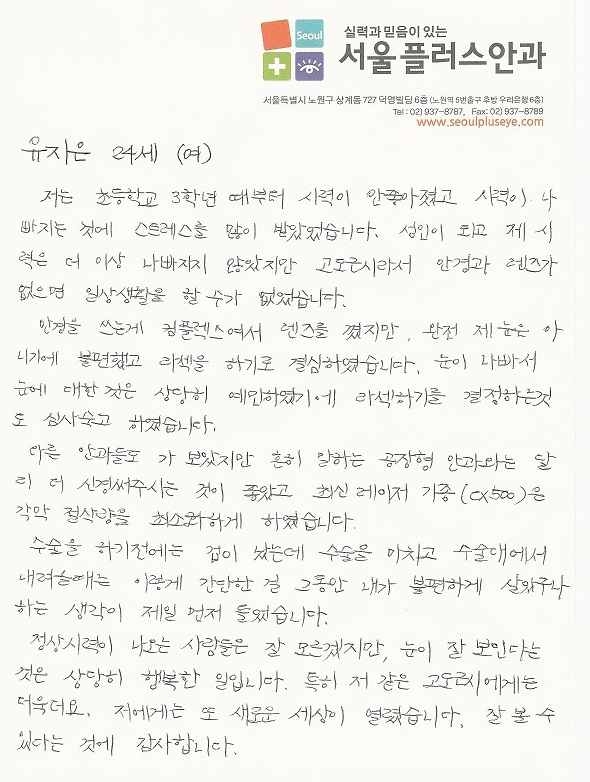 Seoul
실력과 믿음이 있는
서울플러스안과
서울특별시 노원구 상계동 727 덕영빌딩 6층 (노원역 5번출구 후방 우리은행 6층)
Tel : 02) 937-8787, Fax: 02) 937-8789
www.seoulpluseye.com
유자은 24세 (여)
저는 초등학교 3학년 때부터 시력이 안좋아졌고 시력이 나
빠지는 것에 스트레스를 많이 받았었습니다. 성인이 되고 제 시
력은 더 이상 나빠지지 않았지만 고도근시라서 안경과 렌즈가
없으면 일상생활을 할 수가 없었습니다.
안경을 쓰는게 컴플렉스여서 렌즈를 꼈지만, 완전 제 눈은 아
니기에 불편했고 라섹을 하기로 결심하였습니다. 눈이 나빠서
눈에 대한 것은 상당히 예민하였기에 라섹하기를 결정하는것
도 심사숙고 하였습니다.
다른 안과들도 가 보았지만 흔히 말하는 공장형 안과와는 달
리 더 신경써주시는 것이 좋았고 최신 레이저 기종(CX500)은
각막 절삭량을 최소화하게 하였습니다.
수술을 하기전에는 겁이 났는데 수술을 마치고 수술대에서
내려올때는 이렇게 간단한 걸 그동안 내가 불편하게 살았구나
하는 생각이 제일 먼저 들었습니다.
정상시력이 나오는 사람들은 잘 모르겠지만, 눈이 잘 보인다는
것은 상당히 행복한 일입니다. 특히 저 같은 고도근시에게는
더욱더요. 저에게는 또 새로운 세상이 열렸습니다. 잘 볼 수
있다는 것에 감사합니다.